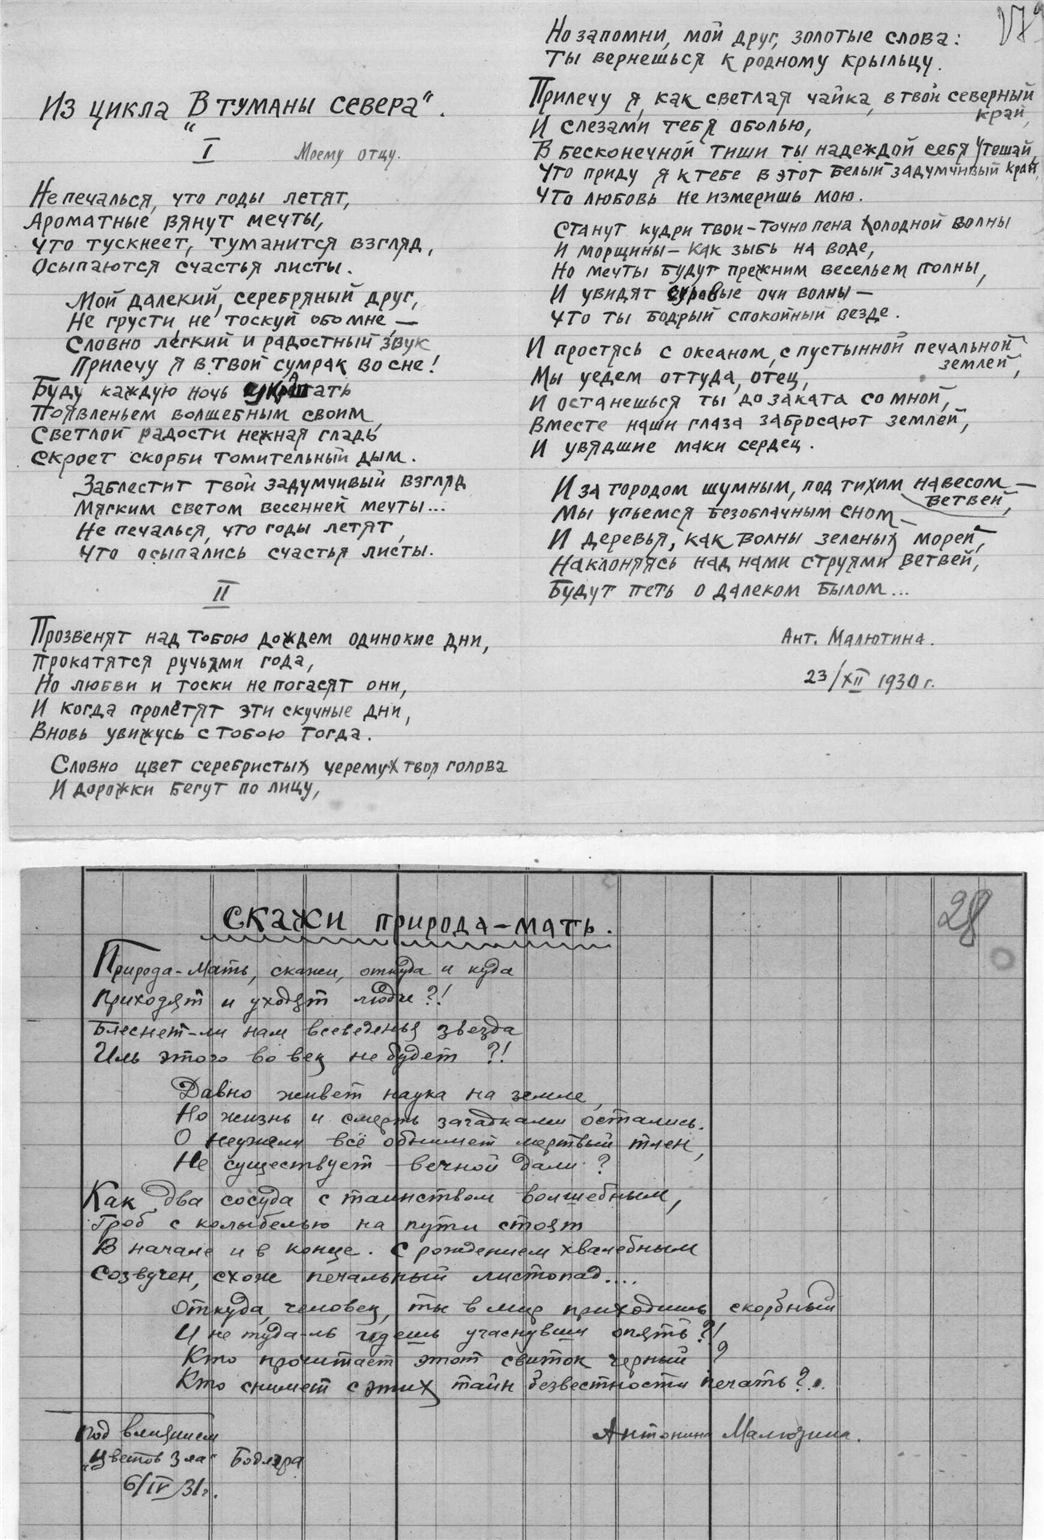 Из цикла „В туманы севера“.
I
Моему отцу.
Не печалься, что годы летят,
Ароматные вянут мечты,
Что тускнеет, туманится взгляд,
Осыпаются счастья листы.
Мой далекий, серебряный друг,
Не грусти, не тоскуй обо мне —
Словно лёгкий и радостный звук
Прилечу я в твой сумрак во сне!
Буду каждую ночь
Появленьем волшебным своим,
Светлой радости нежная гладь
Скроет скорби томительный дым.
Заблестит твой задумчивый взгляд
Мягким светом весенней мечты...
Не печалься, что годы летят,
Что осыпались счастья листы.
II
Прозвенят над тобою дождем одинокие дни,
Прокатятся ручьями года,
Но любви и тоски не погасят они,
И когда пролетят эти скучные дни,
Вновь увижусь с тобою тогда.
Словно цвет серебристых черемух твоя голова
И дорожки бегут по лицу,
Но запомни, мой друг, золотые слова:
Ты вернешься к родному крыльцу.
Прилечу я, как светлая чайка, в твой северный
край,
И слезами тебя оболью,
В бесконечной тиши ты надеждой себя утешай,
Что приду я к тебе в этот белый задумчивый край,
Что любовь не измеришь мою.
Станут кудри твои – точно пена холодной волны
И морщины – как зыбь на воде,
Но мечты будут прежним весельем полны,
И увидят суровые очи волны —
Что ты бодрый спокойный везде.
И простясь с океаном, с пустынной печальной
землей,
Мы уедем оттуда, отец,
И останешься ты до заката со мной,
Вместе наши глаза забросают землей,
И увядшие маки сердец.
И за городом шумным, под тихим навесом
ветвей,
Мы упьемся безоблачным сном —
И деревья, как волны зеленых морей,
Наклоняясь над нами струями ветвей,
Будут петь о далеком былом...
Ант. Малютина.
23/XII 1930 г.
28
Скажи природа-мать.
Природа-Мать, скажи, откуда и куда
Приходят и уходят люди?!
Блеснет-ли нам всеведенья звезда
Иль этого во век не будет?!
Давно живет наука на земле,
Но жизнь и смерть загадками остались.
О неужели всё обнимет мертвый тлен,
Не существует вечной дали?
Как два сосуда с таинством волшебным,
Гроб с колыбелью на пути стоят
В начале и в конце. С рождением хвалебным
Созвучен, схож печальный листопад....
Откуда, человек, ты в мир приходишь скорбный
И не туда-ль идешь угаснувши опять?!
Кто прочитает этот свиток черный?
Кто снимет с этих тайн безвестности печать?..
Под влиянием
„Цветов Зла“ Бодлера
6/IV 31 г.
Антонина Малютина.